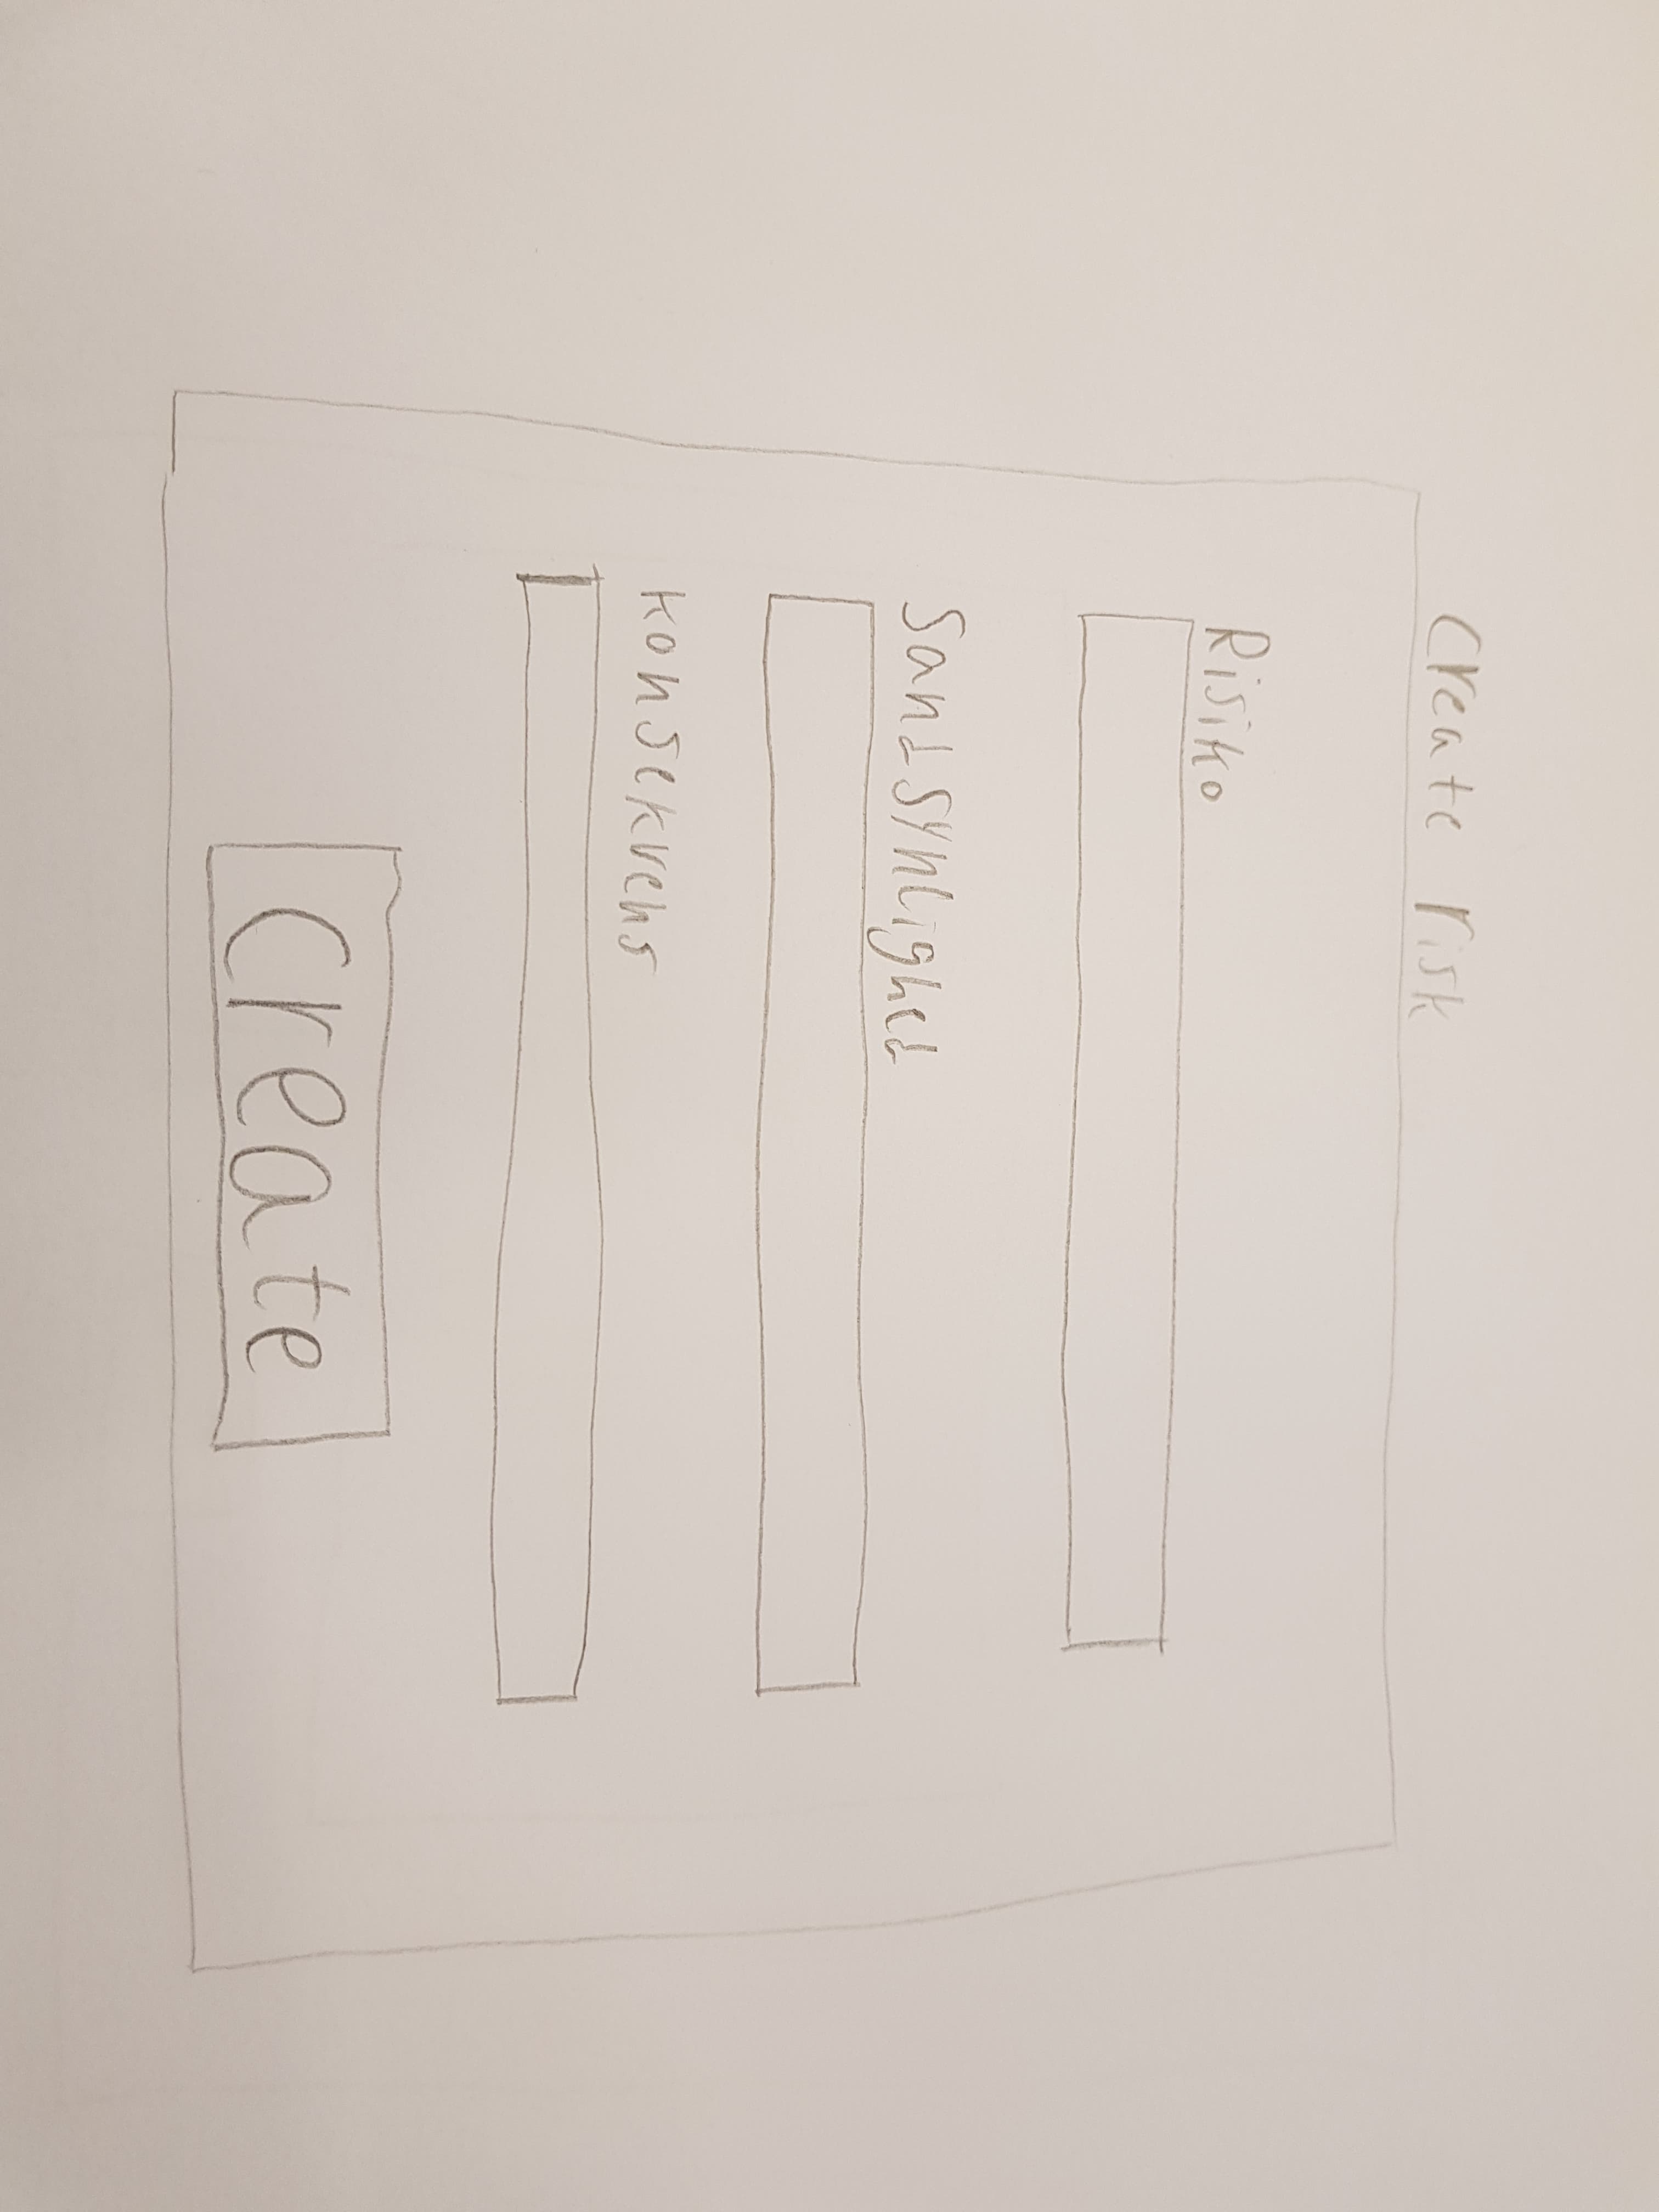 Create risk
Risiko
Sandsynlighed
Konsekvens
Create